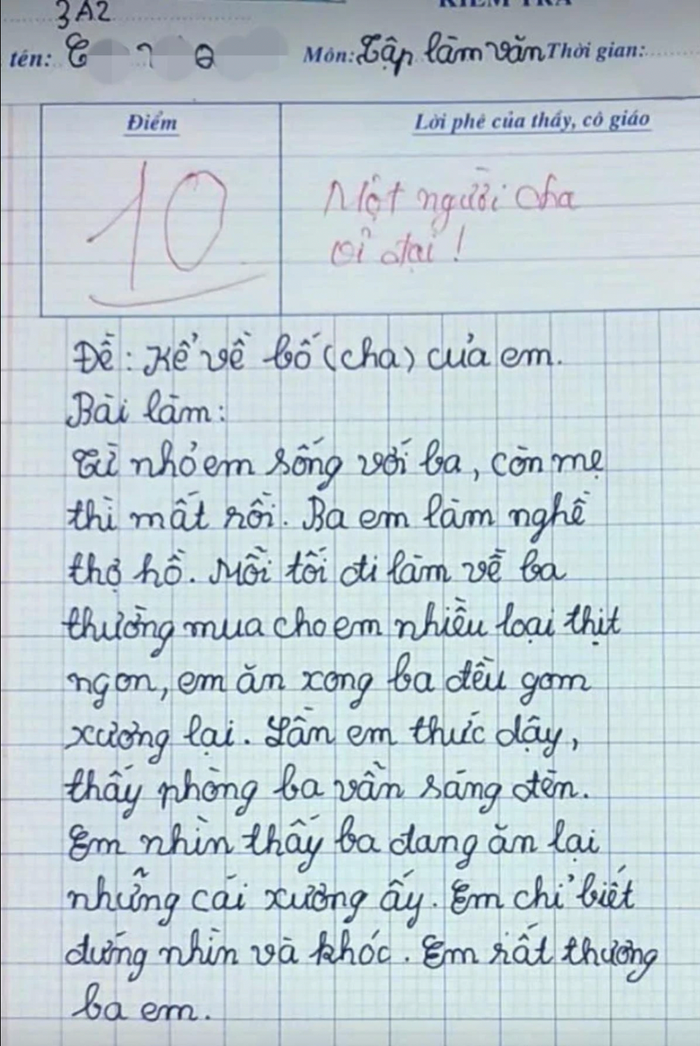 3A2
KIỂM TRA
tên:
Môn: Tập làm văn Thời gian:
Điểm
Lời phê của thầy, cô giáo
10
Một người cha
vĩ đại!
Đề: Kể về bố (cha) của em.
Bài làm:
Từ nhỏ em sống với ba, còn mẹ
thì mất rồi. Ba em làm nghề
thợ hồ. Mỗi tối đi làm về ba
thường mua cho em nhiều loại thịt
ngon, em ăn xong ba đều gom
xương lại. Lần em thức dậy,
thấy phòng ba vẫn sáng đèn.
Em nhìn thấy ba đang ăn lại
những cái xương ấy. Em chỉ biết
đứng nhìn và khóc. Em rất thương
ba em.